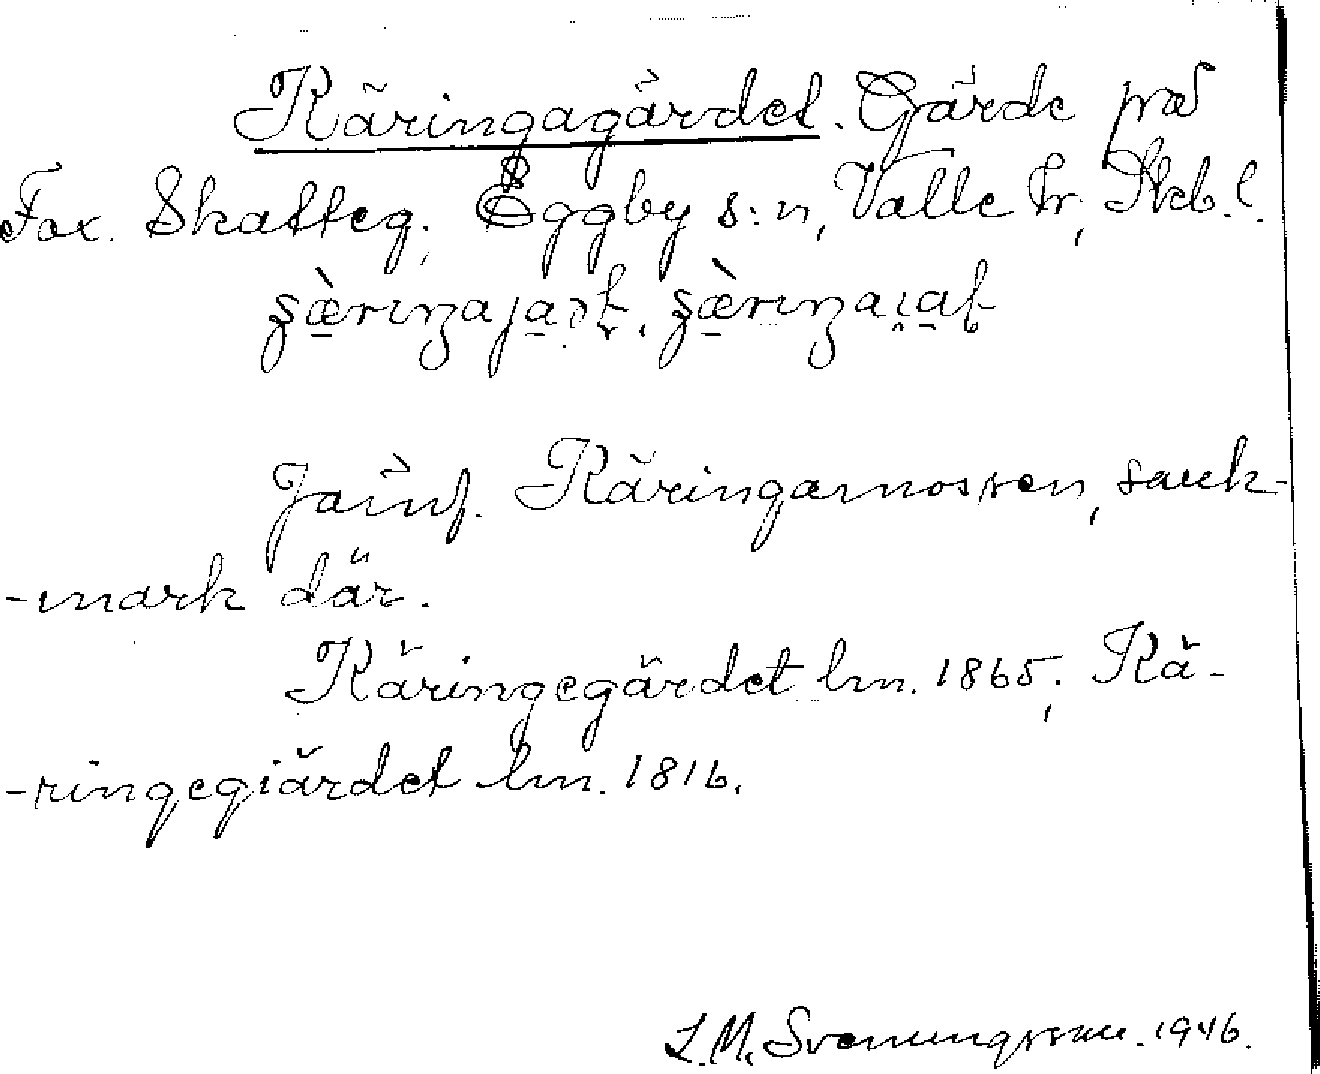 Käringagärdet. Gärde på
Fax. Skatteg. Eggby s:n, Valle hr, Skb. l.
Jämf. Käringamossen, sank-
-mark där.
Käringegärdet lm. 1865, Kä-
-ringegiärdet lm. 1816.
L. M. Svenungsson. 1946.